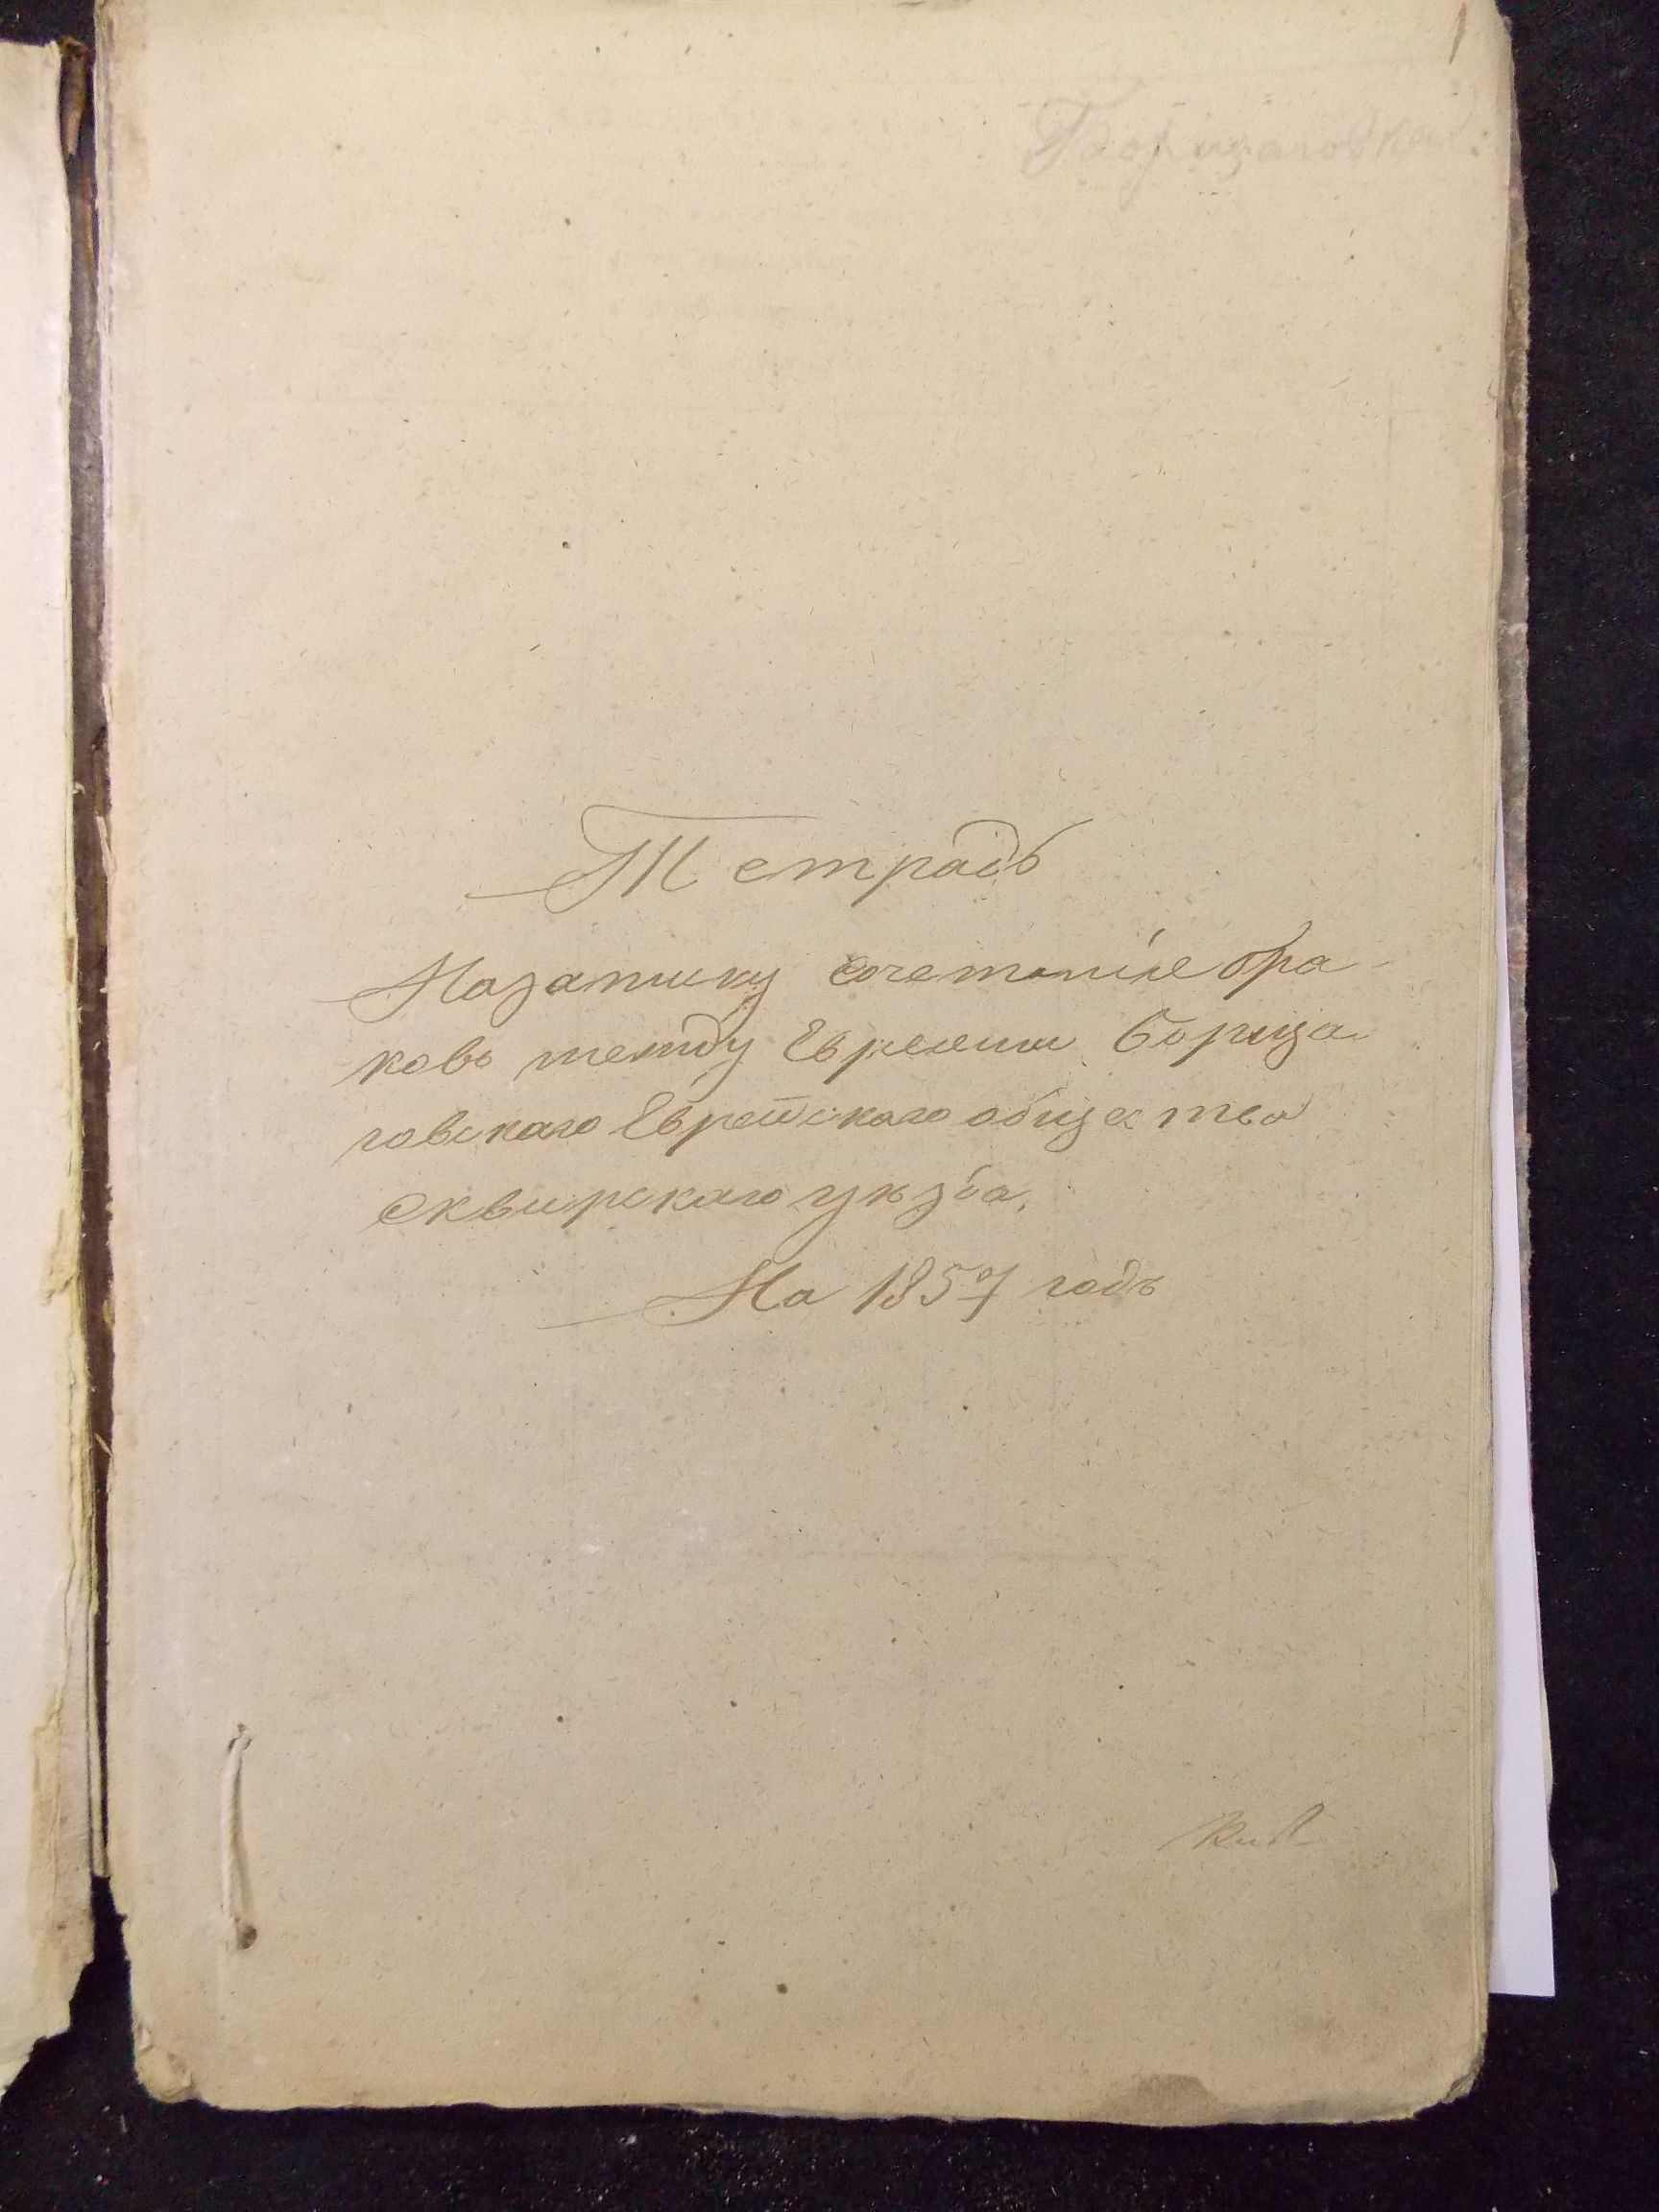 1
Борщаговка
Тетрадь
Назаписку сочетаніе бра-
ковъ между Евреями Борща-
говскаго Еврейскаго общества
Сквирскаго уѣзда,
На 1857 годъ